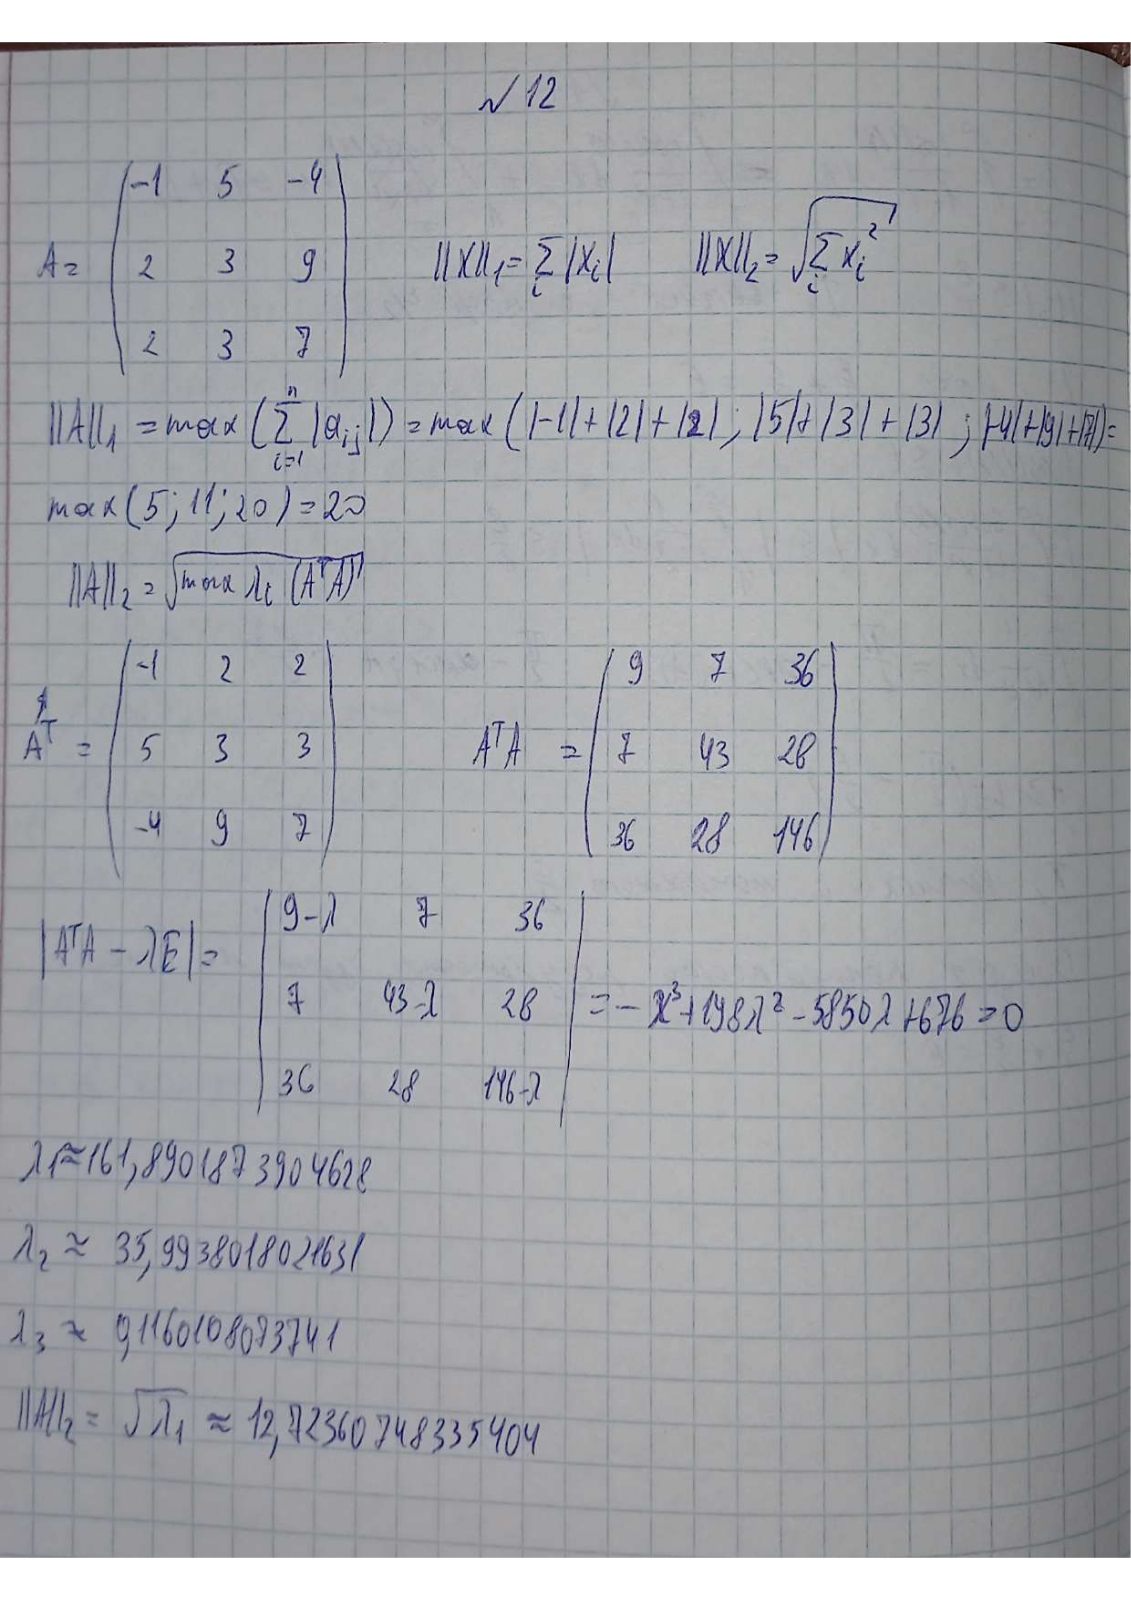 № 12
A = ( -1 5 -4
2 3 9
2 3 7 )
||X||₁ = Σᵢ |xᵢ| ||X||₂ = √(Σᵢ xᵢ²)
||A||₁ = max (Σⁿᵢ₌₁ |aᵢⱼ|) = max (|-1|+|2|+|2| ; |5|+|3|+|3| ; |-4|+|9|+|7|) =
max (5; 11; 20) = 20
||A||₂ = √(max λᵢ (AᵀA))
Aᵀ = ( -1 2 2
5 3 3
-4 9 7 )
AᵀA = ( 9 7 36
7 43 28
36 28 146 )
|AᵀA - λE| = | 9-λ 7 36
7 43-λ 28
36 28 146-λ | = -λ³+198λ²-5850λ+676=0
λ₁ ≈ 161,8901873904628
λ₂ ≈ 35,9938018021631
λ₃ ≈ 0,1160108073741
||A||₂ = √λ₁ ≈ 12,72360748335404